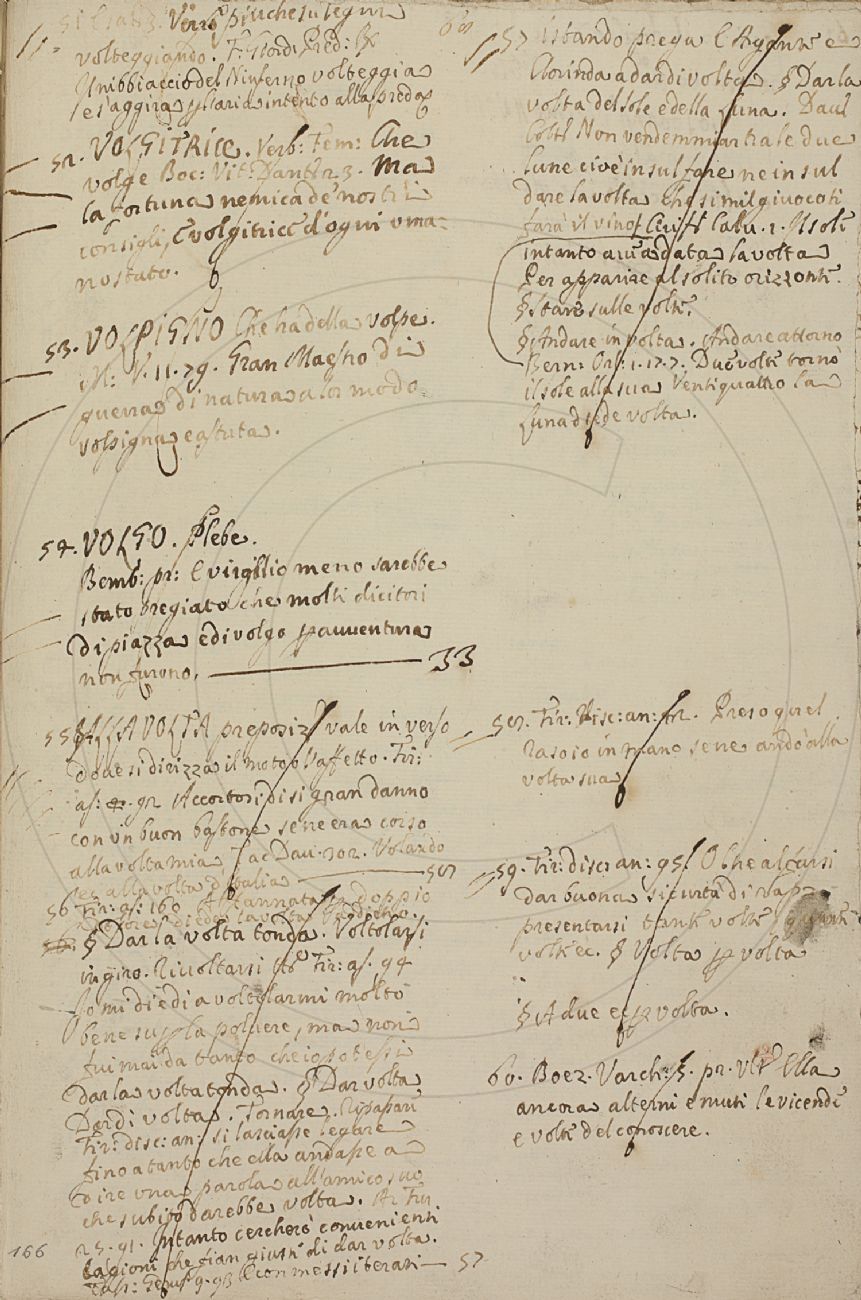 volteggiando. F. Giord. Pred:
Un nibbiaccio del Ninferno volteggia
e s'aggira p l'aria intento alla preda
52. VOLGITRICE. Verb: Fem: Che
volge Boc: Vit: Dant: 23. Ma
la fortuna nemica de' nostri
consigli, e volgitrice d'ogni uma-
no stato.
53. VOLPIGNO Che ha della volpe.
M: V. 11. 79. Gran Maestro di
guerra di natura a lor modo
volpigna e astuta.
54. VOLGO. Plebe.
Bemb: pr: E virgilio meno sarebbe
stato pregiato che molti dicitori
di piazza e di volgo p avventura
non furono. 33
55. ALLA VOLTA preposiz vale in verso
dove si dirizza il moto o l'affetto. Fir:
as: 92 Accortosi di sì gran danno
con un buon bastone se ne era corso
alla volta mia, Tac Dav. 302. Volando
ec alla volta d'Italia 58
56 Fir: as: 160
§ Dar la volta tonda. Voltolarsi
in giro. Rivoltarsi Fir: as. 94
Io mi diedi a voltolarmi molto
bene su p la polvere, ma non
fui mai da tanto che io potessi
dar la volta tonda. § Dar volta
Dar di volta. Tornare.
Fir: disc: an: si lasciasse legare
fino a tanto che ella andasse a
dire una parola all'amico suo
che subito darebbe volta. Ar Fur
25. 91. Intanto cercherò convenienti
cagioni che sian giuste di dar volta.
Tass: Ger: 9. 93 E con messi iterati 57
166
57 istando prega E Argante e
Clorinda a dar di volta. § Dar la
volta del sole e della Luna. Dav
Colt Non vendemmiar tra le due
lune cioè in sul fare ne in sul
dare la volta che simil giuocoti
farà il vino Ciriff Calv. 1. Il sole
intanto avea data la volta
Per apparire al solito orizzonte.
§ Stare sulle volte.
§ Andare in volta. Andare attorno
Bern: Orl: 1. 17. 7. Due volte tornò
il sole alla sua Ventiquattro la
Luna diede volta.
58. Fir: disc: an: 62. Preso quel
rasoio in mano se ne andò alla
volta sua
59. Fir: disc: an: 95. O che al farsi
dar buona sicurtà di
presentarsi tante volte quante
volte ec. § Volta p volta
§ A due ec p volta.
60. Boez. Varch: 5. pr. Ella
ancora alterni e muti le vicende
e volte del conoscere.